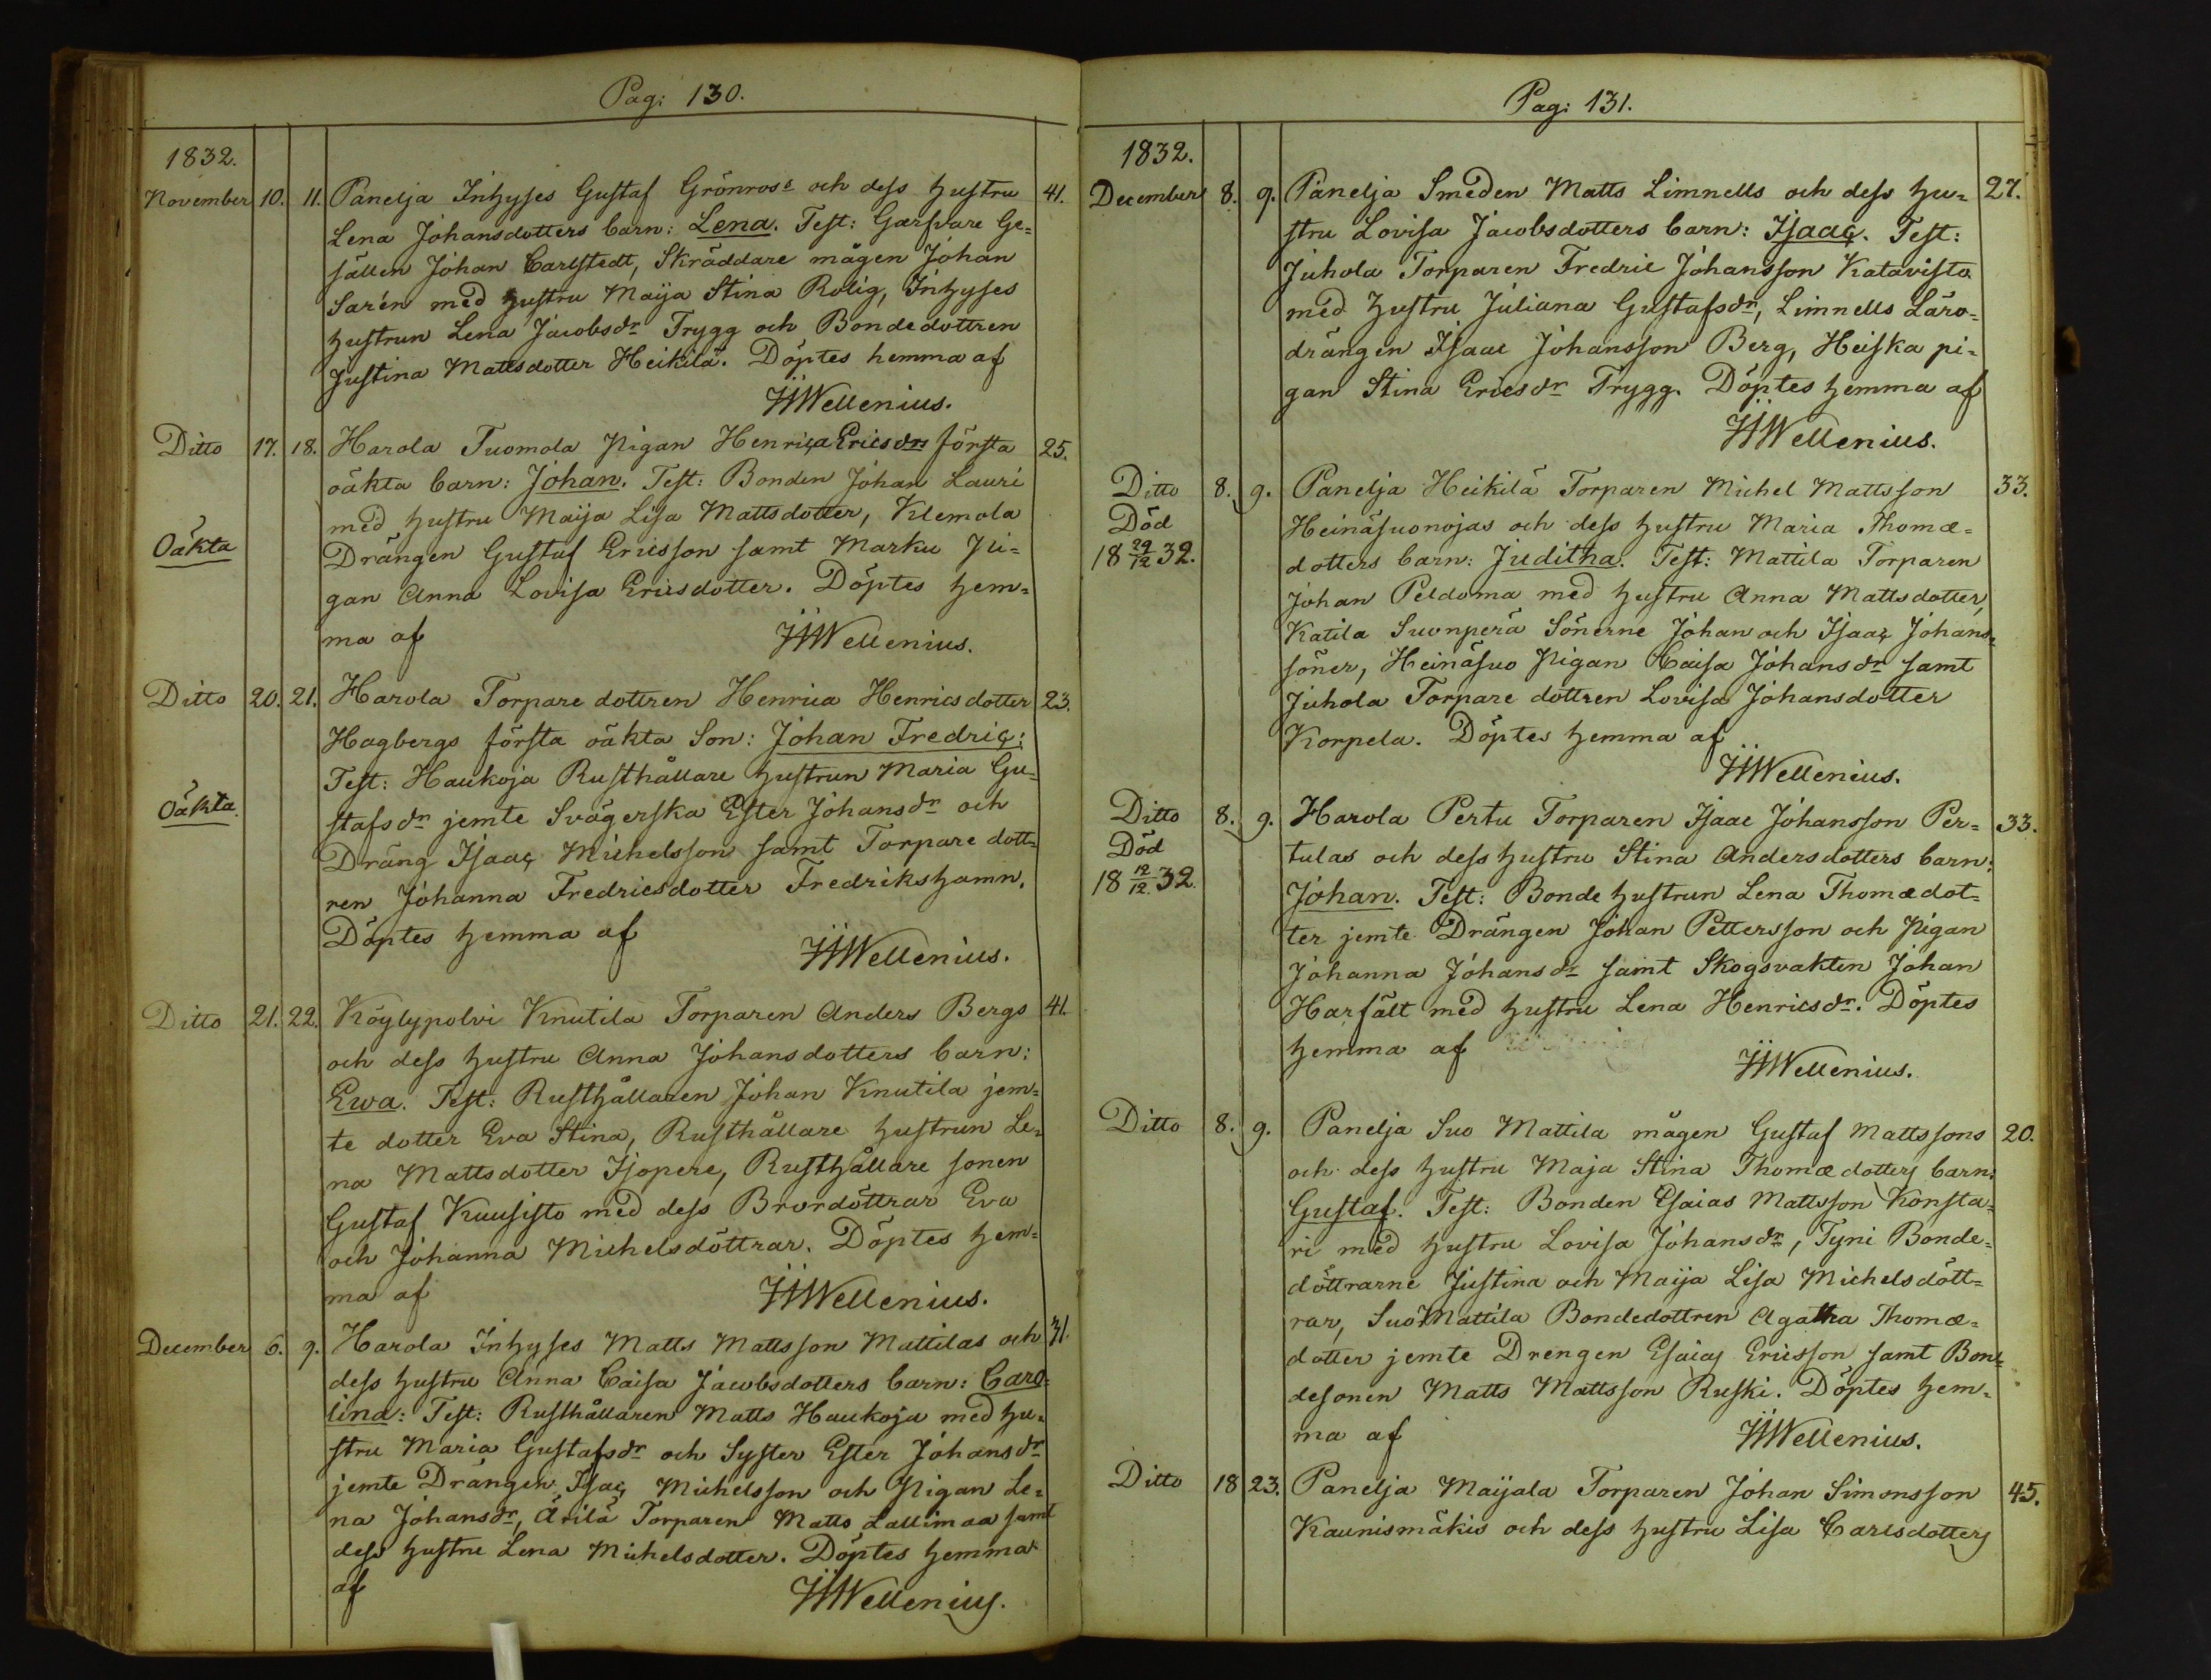 Pag: 130.
1832.
November 10. 11. Panelja Inhyses Gustaf Grönross och dess hustru 41.
Lena Johansdotters barn: Lena. Test: Garfvare Ge=
sällen Johan Carlstedt, Skräddare mågen Johan
Sarén med hustru Maija Stina Rolig, Inhyses
hustrun Lena Jacobsdr Trygg och Bondedottren
Justina Mattsdotter Heikilä. Döptes hemma af
Wellenius.
Ditto 17. 18. Harola Tuomola Pigan Henrica Ericsdrs första 25.
oäkta barn: Johan. Test: Bonden Johan Lauri
med hustru Maija Lisa Mattsdotter, Klemola
Oäkta
Drängen Gustaf Ericsson samt Marku Pi=
gan Anna Lovisa Ericsdotter. Döptes hem=
ma af Wellenius.
Ditto 20. 21. Harola Torpare dottren Henrica Henricsdotter 23.
Hagbergs första oäkta Son: Johan Fredric:
Test: Haukoja Rusthållare hustrun Maria Gu=
Oäkta.
stafsdr jemte Svägerska Ester Johansdr och
Dräng Isaac Michelsson samt Torpare dott=
ren Johanna Fredricsdotter Fredrikshamn.
Döptes hemma af
Wellenius.
Ditto 21. 22. Köylypolvi Knutila Torparen Anders Bergs 41.
och dess hustru Anna Johansdotters barn:
Ewa. Test: Rusthållaren Johan Knutila jem=
te dotter Eva Stina, Rusthållare hustrun Le=
na Mattsdotter Isopere, Rusthållare sonen
Gustaf Kuusisto med dess Brordöttrar Eva
och Johanna Michelsdöttrar. Döptes hem=
ma af Wellenius.
December 6. 9. Harola Inhyses Matts Mattsson Mattilas och 31.
dess hustru Anna Caisa Jacobsdotters barn: Caro=
lina: Test: Rusthållaren Matts Haukoja med hu=
stru Maria Gustafsdr och Syster Ester Johansdr
jemte Drängen Isac Michelsson och Pigan Le=
na Johansdr, Ärilä Torparen Matts Lallimaa samt
dess hustru Lena Michelsdotter. Döptes hemma
af
Wellenius.
Pag: 131.
1832.
December 8. 9. Panelja Smeden Matts Limnells och dess hu= 27.
stru Lovisa Jacobsdotters barn: Isaac. Test:
Juhola Torparen Fredric Johansson Katavisto
med hustru Juliana Gustafsdr, Limnells Läro=
drängen Isaac Johansson Berg, Heiska pi=
gan Stina Ericsdr Trygg. Döptes hemma af
Wellenius.
Ditto 8. 9. Panelja Heikilä Torparen Michel Mattsson 33.
Död
Heinäsuonojas och dess hustru Maria Thomæ=
18 29/12 32.
dotters barn: Juditha. Test: Mattila Torparen
Johan Peldoma med hustru Anna Mattsdotter,
Katila Suonperä Sönerne Johan och Isaac Johans=
söner, Heinäsuo Pigan Caisa Johansdr samt
Juhola Torpare dottren Lovisa Johansdotter
Korpela. Döptes hemma af
Wellenius.
Ditto 8. 9. Harola Pertu Torparen Isaac Johansson Per= 33.
Död
tulas och dess hustru Stina Andersdotters barn:
18 12/12 32.
Johan. Test: Bonde hustrun Lena Thomædot=
ter jemte Drängen Johan Pettersson och Pigan
Johanna Johansdr samt Skogsvakten Johan
Harfält med hustru Lena Henricsdr. Döptes
hemma af
Wellenius.
Ditto 8. 9. Panelja Suo Mattila mågen Gustaf Mattssons 20.
och dess hustru Maja Stina Thomædotters barn:
Gustaf. Test: Bonden Esaias Mattsson Konsta=
ri med hustru Lovisa Johansdr, Tyni Bonde=
döttrarne Justina och Maija Lisa Michelsdött=
rar, Suo Mattila Bondedottren Agatha Thomæ=
dotter jemte Drengen Esaias Ericsson samt Bon=
desonen Matts Mattsson Ruski. Döptes hem=
ma af Wellenius.
Ditto 18 23. Panelja Maijala Torparen Johan Simonsson 45.
Kaunismäkis och dess hustru Lisa Carlsdotters